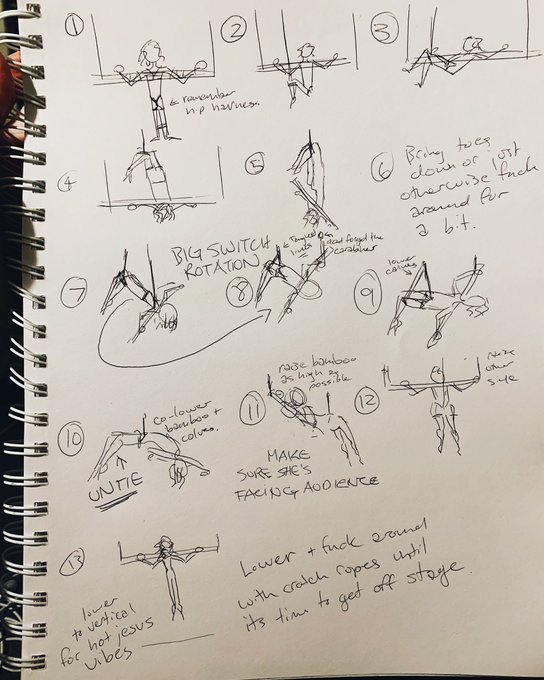 1
2
3
← remember
hip harness.
4
5
6
Bring toes
down or just
otherwise fuck
around for
a bit.
7
BIG SWITCH
ROTATION
8
← Tangled
lines
dead forget the
carabiner
9
lower
calves
10
co-lower
bamboo +
calves.
UNTIE
11
raise bamboo
as high as
possible
MAKE
SURE SHE'S
FACING AUDIENCE
12
raise
other
side
13
lower
to vertical
for hot jesus
vibes
Lower + fuck around
with crotch ropes until
its time to get off stage.